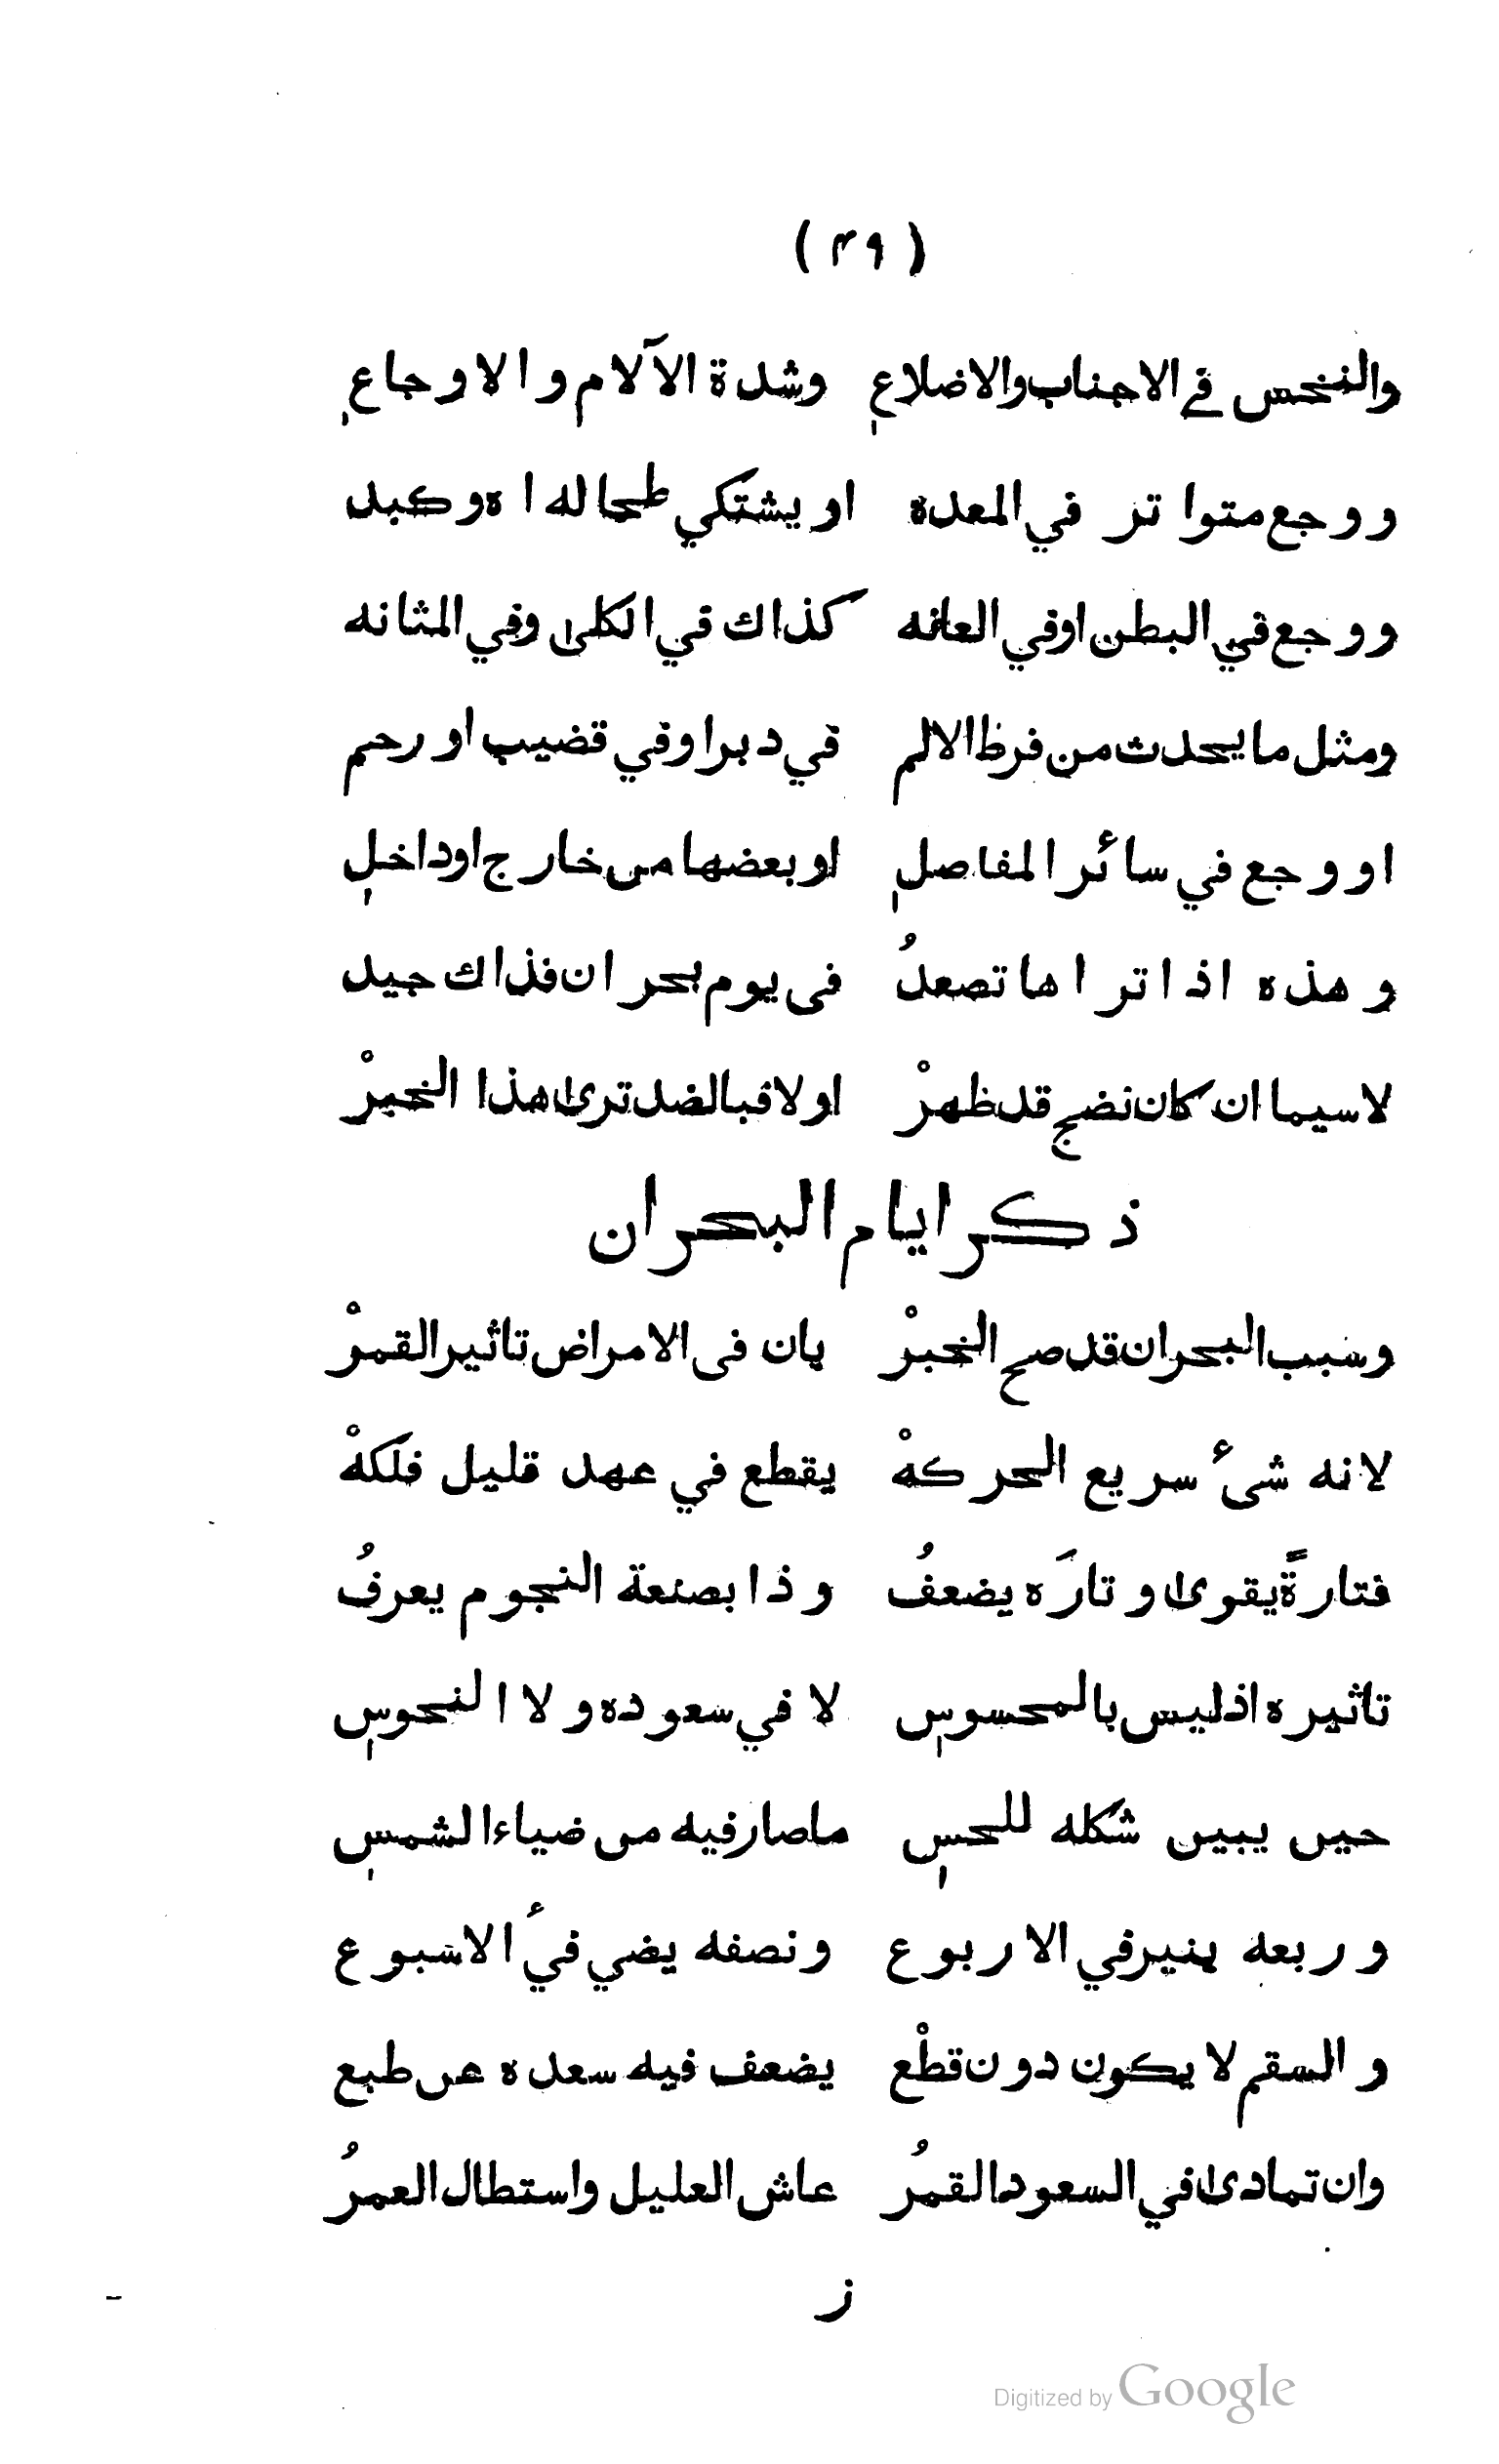 ( ۴۹ )
والنخس في الاجناب والاضلاعِ وشدة الآلام والاوجاعِ
ووجع متواتر في المعده او يشتكي طحاله اوكبده
ووجع في البطن اوفي العانه كذاك في الكلى وفي المثانه
ومثل ما يحدث من فرط الالم في دبر اوفي قضيب او رحم
او وجع في سائر المفاصلِ او بعضها من خارج اوداخلِ
وهذه اذا تراها تصعدُ فى يوم بحران فذاك جيد
لاسيما ان كان نضج قد ظهرْ او لا فبالضد ترى هذا الخبرْ
ذكر ايام البحران
وسبب البحران قد صح الخبرْ بان فى الامراض تاثير القمرْ
لانه شئ سريع الحركهْ يقطع في عهد قليل فلكهْ
فتارةً يقوى وتارَه يضعفُ وذا بصنعة النجوم يعرفُ
تاثيره اذ ليس بالمحسوسِ لا في سعوده ولا النحوسِ
حين يبين شكله للحسِ ما صار فيه من ضياء الشمسِ
وربعه ينير في الاربوع ونصفه يضي فيُ الاسبوع
والسقم لا يكون دون قطْع يضعف فيه سعده عن طبع
وان تمادى في السعود القمرُ عاش العليل واستطال العمرُ
ز
Digitized by Google